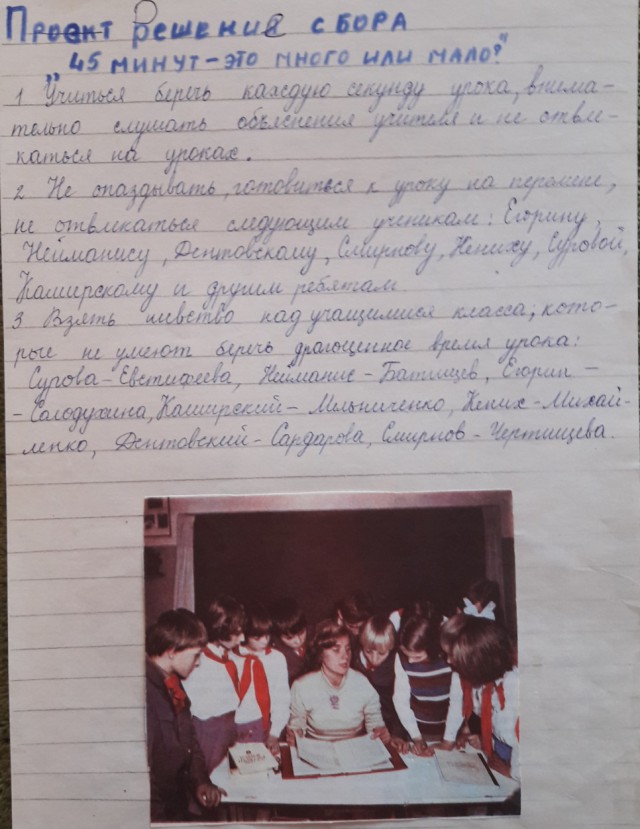 Проект решения сбора
"45 минут – это много или мало?"
1 Учиться беречь каждую секунду урока, внима-
тельно слушать объяснения учителя и не отвле-
каться на уроках.
2 Не опаздывать, готовиться к уроку на перемене,
не отвлекаться следующим ученикам: Егорину,
Нейманису, Дентовскому, Смирнову, Кениху, Суровой,
Каширскому и другим ребятам
3 Взять шефство над учащимися класса, кото-
рые не умеют беречь драгоценное время урока:
Сурова-Евстифеева, Нейманис-Батищев, Егорин -
- Солодухина, Каширский - Мельниченко, Кених-Михай-
ленко, Дентовский - Сардарова, Смирнов - Чертищева.